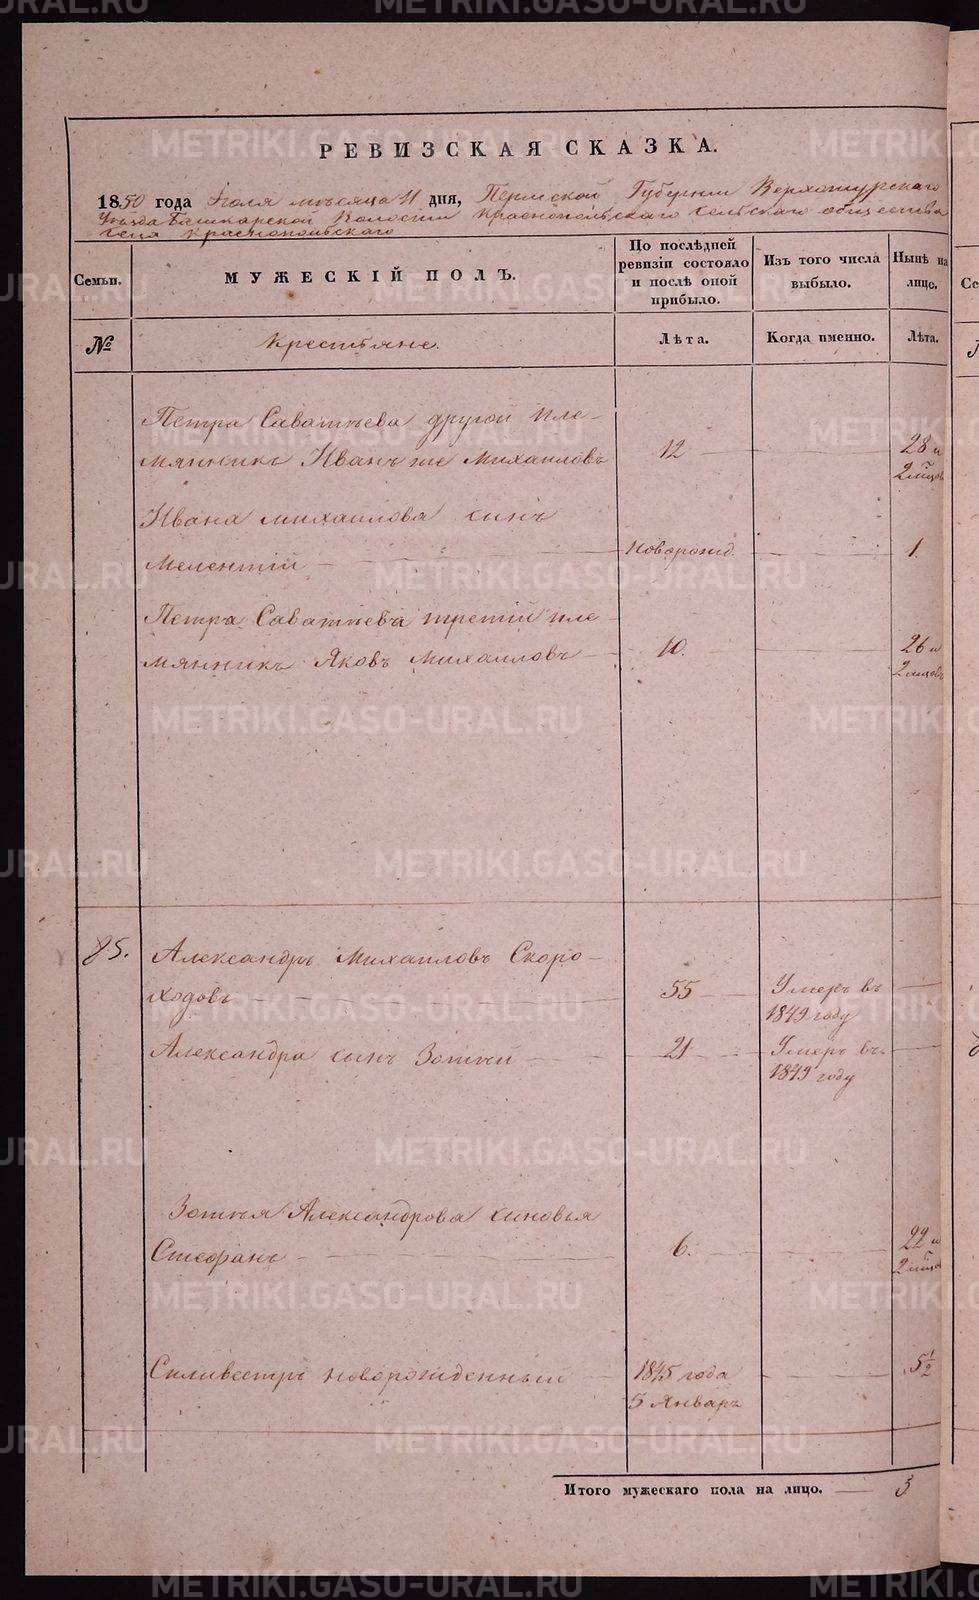 РЕВИЗСКАЯ СКАЗКА.
1850 года Іюля мѣсяца 11 дня, Пермской Губерніи Верхотурскаго
Уѣзда Башкарской Волости Краснопольскаго сельскаго общества
села Краснопольскаго
Семьи.
МУЖЕСКІЙ ПОЛЪ.
По послѣдней ревизіи состояло и послѣ оной прибыло.
Изъ того числа выбыло.
Нынѣ на лицо.
№
Крестьяне.
Лѣта.
Когда именно.
Лѣта.
Петра Саватьева другой пле-
мянникъ Иванъ же Михаиловъ 12 28 и
2 мцовъ
Ивана Михаилова сынъ
Мелентій новорожд. 1
Петра Саватьева третій пле-
мянникъ Яковъ Михаиловъ 10. 26 и
2 мцовъ
85. Александръ Михаиловъ Скоро-
ходовъ 55 Умеръ въ
1849 году
Александра сынъ Зотий 21 Умеръ въ
1849 году
Зотья Александрова сыновья
Стефанъ 6. 22 и
2 мцов
Силивестръ новорожденный 1845 года 5½
5 Январь
Итого мужескаго пола на лицо. 5
METRIKI.GASO-URAL.RU